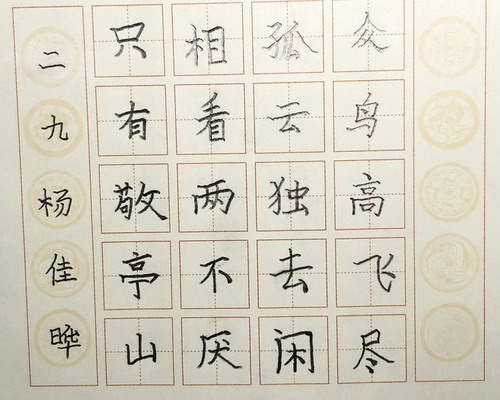 众鸟高飞尽
孤云独去闲
相看两不厌
只有敬亭山
二九杨佳晔